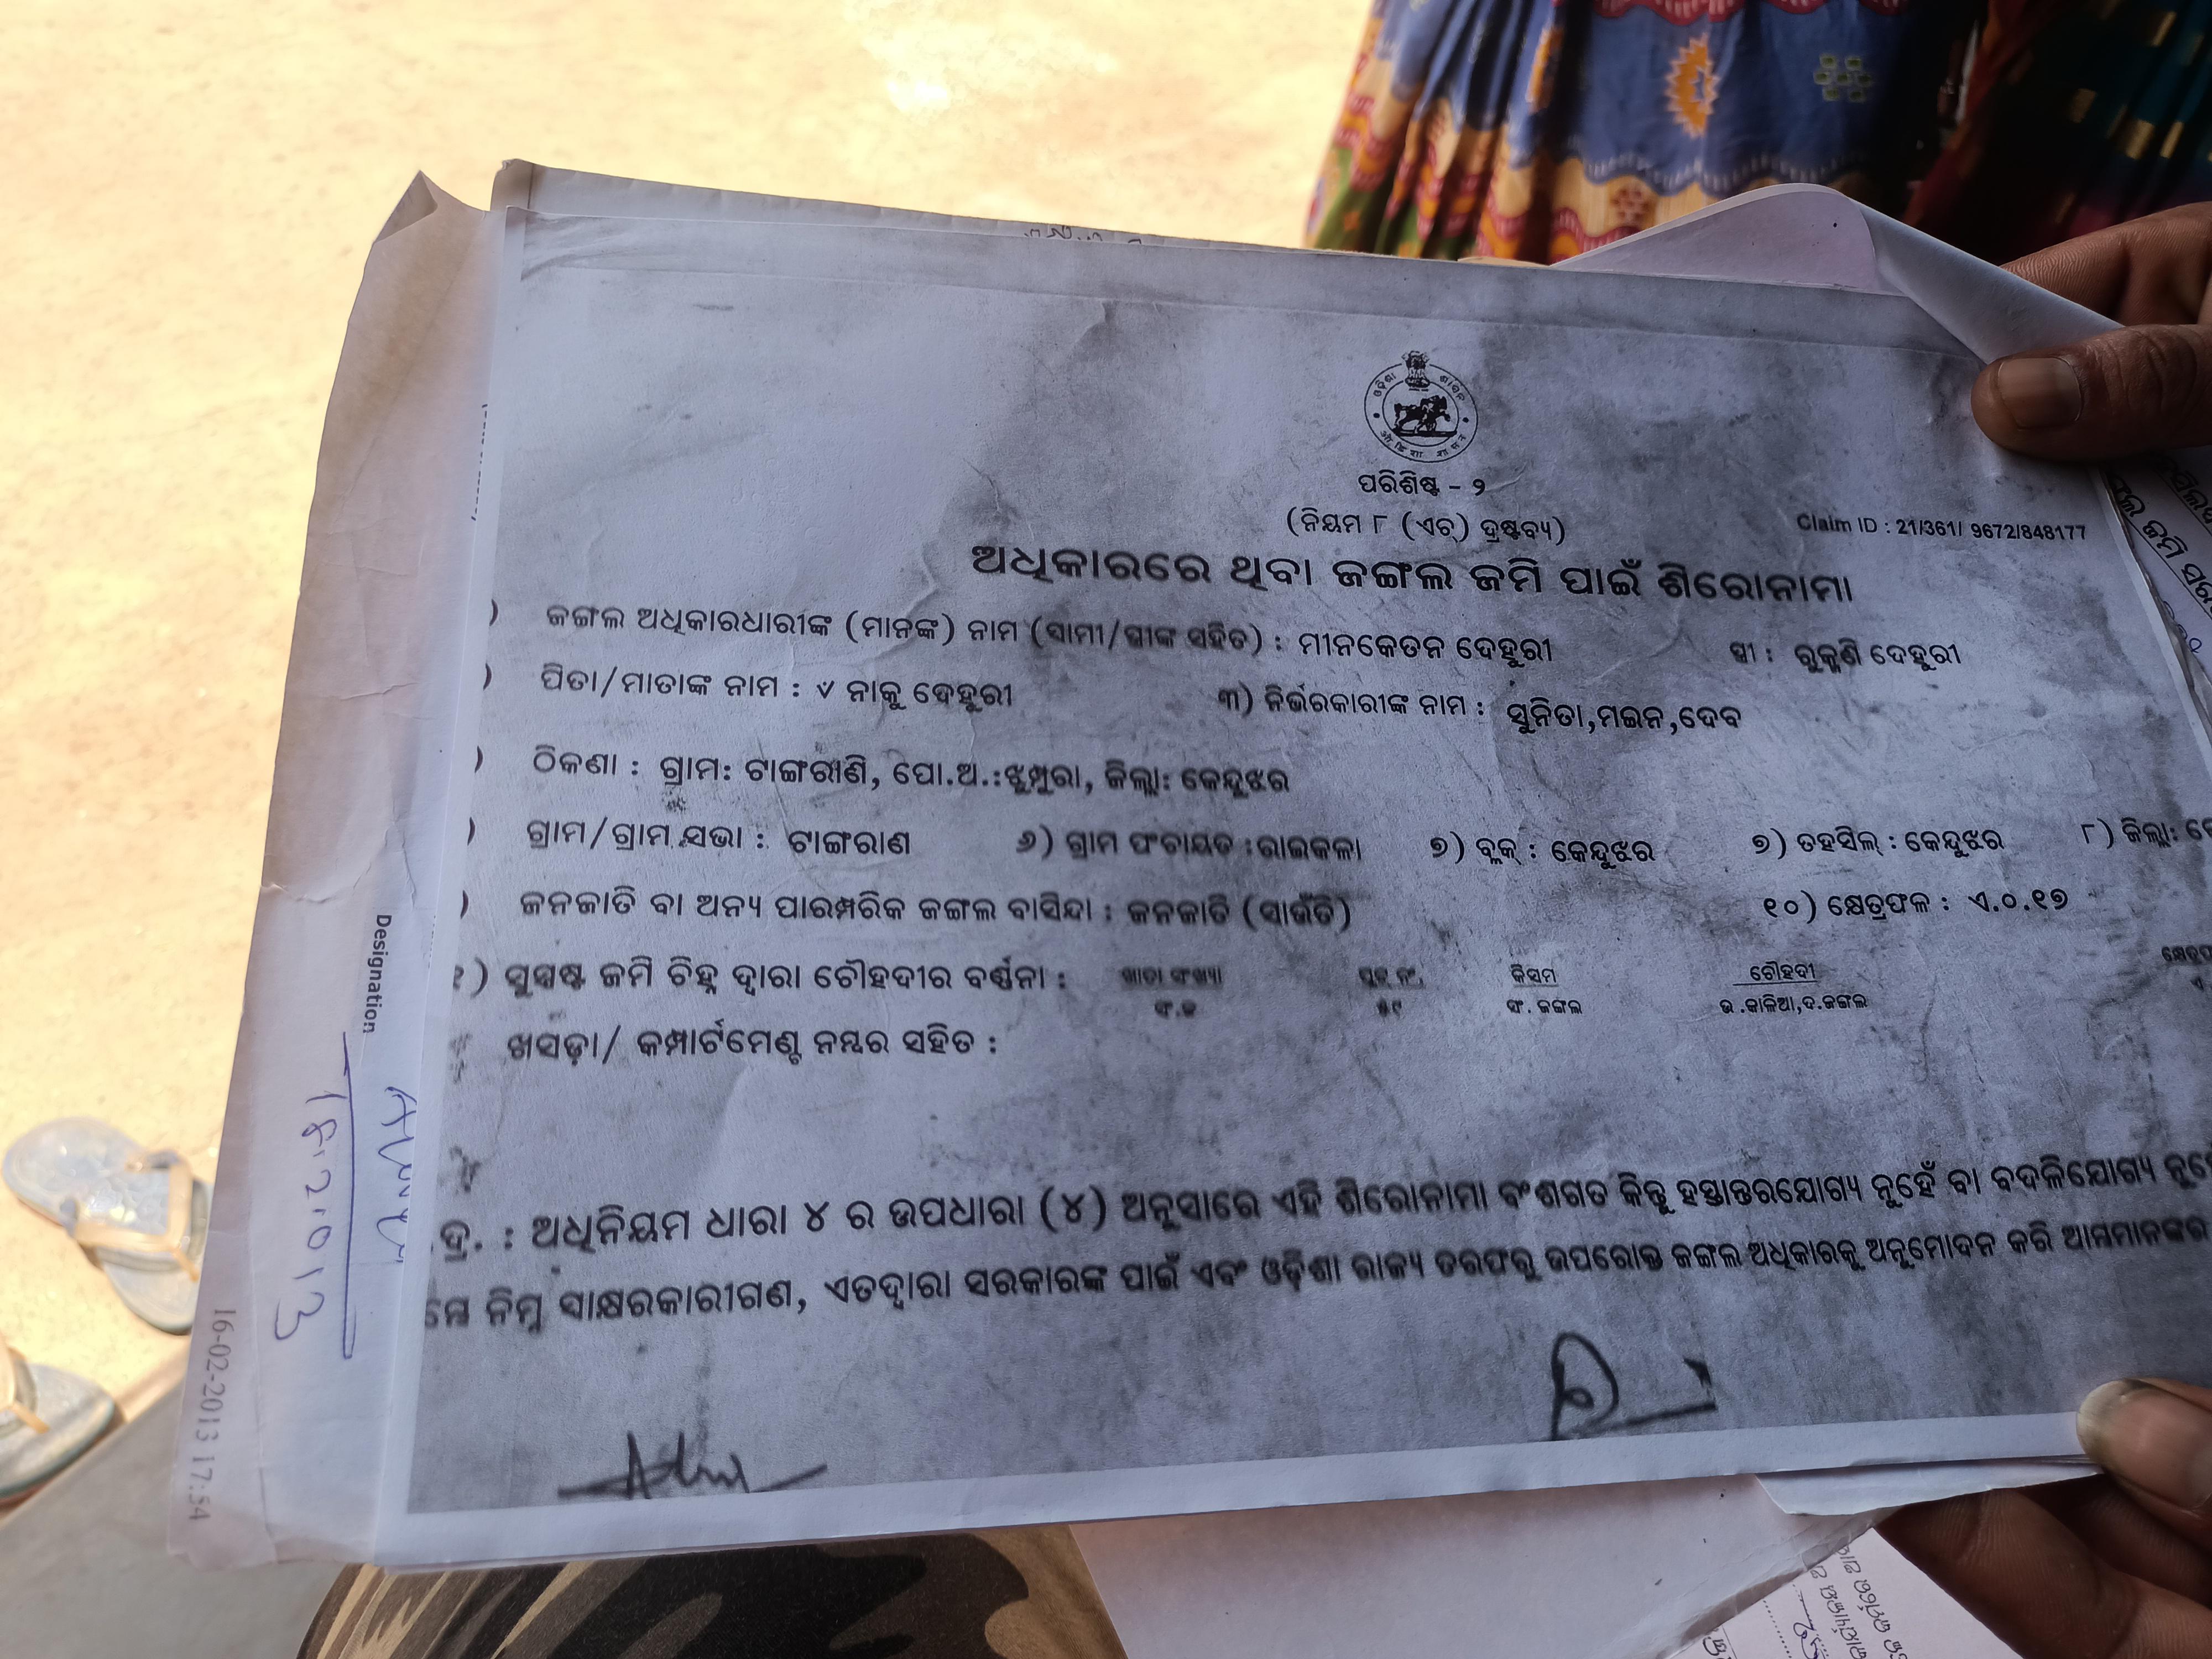 ଓଡ଼ିଶା ଶାସନ
ପରିଶିଷ୍ଟ - ୨
(ନିୟମ ୮ (ଏଚ୍) ଦ୍ରଷ୍ଟବ୍ୟ)
Claim ID : 21/361/ 9672/848177
ଅଧିକାରରେ ଥିବା ଜଙ୍ଗଲ ଜମି ପାଇଁ ଶିରୋନାମା
) ଜଙ୍ଗଲ ଅଧିକାରଧାରୀଙ୍କ (ମାନଙ୍କ) ନାମ (ସାମୀ/ସ୍ତ୍ରୀଙ୍କ ସହିତ) : ମୀନକେତନ ଦେହୁରୀ ସ୍ତ୍ରୀ : ରୁକ୍ମଣି ଦେହୁରୀ
) ପିତା/ମାତାଙ୍କ ନାମ : ୰ ନାକୁ ଦେହୁରୀ ୩) ନିର୍ଭରକାରୀଙ୍କ ନାମ : ସୁନିତା,ମଇନ,ଦେବ
) ଠିକଣା : ଗ୍ରାମ: ଟାଙ୍ଗରାଣି, ପୋ.ଅ.:ଝୁମ୍ପୁରା, ଜିଲ୍ଲା: କେନ୍ଦୁଝର
) ଗ୍ରାମ/ଗ୍ରାମ ସଭା : ଟାଙ୍ଗରାଣ ୬) ଗ୍ରାମ ପଂଚାୟତ :ରାଇକଳା ୭) ବ୍ଲକ୍ : କେନ୍ଦୁଝର ୭) ତହସିଲ୍ : କେନ୍ଦୁଝର ୮) ଜିଲ୍ଲା: କେ
) ଜନଜାତି ବା ଅନ୍ୟ ପାରମ୍ପରିକ ଜଙ୍ଗଲ ବାସିନ୍ଦା : ଜନଜାତି (ସାଉଁତି) ୧୦) କ୍ଷେତ୍ରଫଳ : ଏ.୦.୧୭
୧) ସୁସ୍ପଷ୍ଟ ଜମି ଚିହ୍ନ ଦ୍ୱାରା ଚୌହଦୀର ବର୍ଣ୍ଣନା : ଖାତା ସଂଖ୍ୟା ପ୍ଲଟ୍ ନଂ. କିସମ ଚୌହଦୀ
ସଂ. ଜଙ୍ଗଲ ଉ.କାଳିଆ,ଦ.ଜଙ୍ଗଲ
ଖସଡ଼ା/ କମ୍ପାର୍ଟମେଣ୍ଟ ନମ୍ବର ସହିତ :
.ଦ୍ର. : ଅଧିନିୟମ ଧାରା ୪ ର ଉପଧାରା (୪) ଅନୁସାରେ ଏହି ଶିରୋନାମା ବଂଶଗତ କିନ୍ତୁ ହସ୍ତାନ୍ତରଯୋଗ୍ୟ ନୁହେଁ ବା ବଦଳିଯୋଗ୍ୟ ନୁହେ
ନିମ୍ନ ସାକ୍ଷରକାରୀଗଣ, ଏତଦ୍ୱାରା ସରକାରଙ୍କ ପାଇଁ ଏବଂ ଓଡ଼ିଶା ରାଜ୍ୟ ତରଫରୁ ଉପରୋକ୍ତ ଜଙ୍ଗଲ ଅଧିକାରକୁ ଅନୁମୋଦନ କରି ଆମମାନଙ୍କର
Designation
18.2.013
16-02-2013 17:54